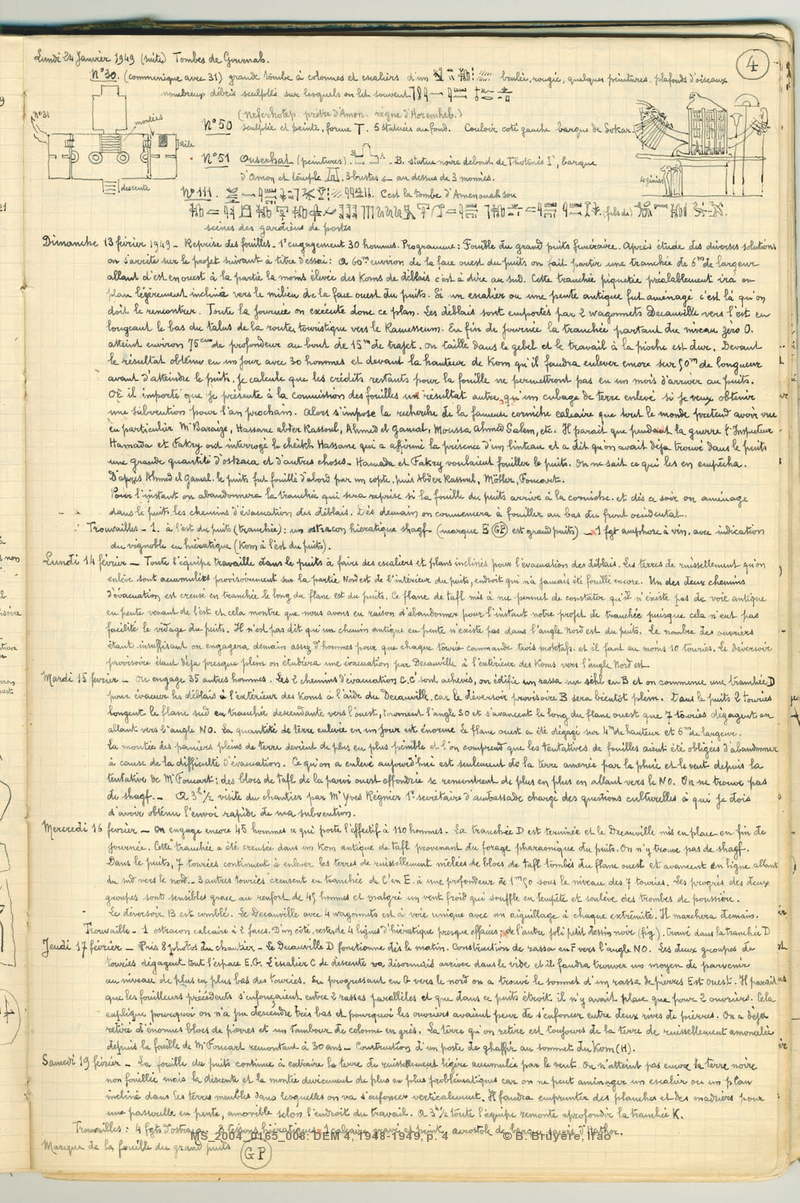 Lundi 24 Janvier 1949 (suite) Tombes de Gournah.
4
N° 30. (communique avec 31) grande tombe à colonnes et escaliers d'un brulée, rougie, quelques peintures. plafonds d'oiseaux
nombreux débris sculptés sur lesquels on lit souvent
(Neferhotep. prêtre d'Amon. règne d'Horemheb.)
N° 31
montées
N° 50 sculptée et peinte, forme T. 5 statues au fond. Couloir coté gauche barque de Sokar
N° 51 Ouserhat (peintures). B. statue noire debout de Thotmès Ier, barque
d'Amon et temple. 3 bustes au dessus de 3 momies.
descente
N° 111. C'est la tombe d'Amenouahsou
(fils de)
scènes des gardiens de portes
Dimanche 13 février 1949 - Reprise des fouilles. 1er engagement 30 hommes. Programme : Fouille du grand puits funéraire. Après étude des diverses solutions
on s'arrête sur le projet suivant à titre d'essai : A 60m environ de la face ouest du puits on fait partir une tranchée de 5m de largeur
allant d'est en ouest à la partie la moins élevée des Koms de déblais c'est à dire au sud. Cette tranchée piquetée préalablement ira en
plan légèrement incliné vers le milieu de la face ouest du puits. Si un escalier ou une pente antique fut aménagé c'est là qu'on
doit le rencontrer. Toute la journée on exécute donc ce plan. Les déblais sont emportés par 2 wagonnets Decauville vers l'est en
longeant le bas du talus de la route touristique vers le Ramesseum. En fin de journée la tranchée partant du niveau zéro 0.
atteint environ 75cm de profondeur au bout de 15m de trajet. On taille dans le gebel et le travail à la pioche est dur. Devant
le résultat obtenu en un jour avec 30 hommes et devant la hauteur de Kom qu'il faudra enlever encore sur 50m de longueur
avant d'atteindre le puits, je calcule que les crédits restants pour la fouille ne permettront pas en un mois d'arriver au puits.
Or il importe que je présente à la commission des fouilles un résultat autre qu'un cubage de terre enlevé si je veux obtenir
une subvention pour l'an prochain. Alors s'impose la recherche de la fameuse corniche calcaire que tout le monde prétend avoir vue
en particulier Mr Baraize, Hassane abder Rassoul, Ahmed el Gamal, Moussa Ahmed Salem, etc. Il parait que pendant la guerre l'Inspecteur
Hamada et Fakry ont interrogé le cheikh Hassane qui a affirmé la présence d'un linteau et a dit qu'on avait déjà trouvé dans le puits
une grande quantité d'ostraca et d'autres choses. Hamada et Fakry voulaient fouiller le puits. On ne sait ce qui les en empêcha.
D'après Ahmed el Gamal. le puits fut fouillé d'abord par un copte, puis Abder Rassoul, Möller, Foucart.
Pour l'instant on abandonnera la tranchée qui sera reprise si la fouille du puits arrive à la corniche. et dès ce soir on aménage
dans le puits les chemins d'évacuation des déblais. Dès demain on commencera à fouiller au bas du front occidental.
Trouvailles - 1. à l'est du puits (tranchée) : un ostracon hiératique shagf (marque B GP est grand puits) - 1 fgt amphore à vin. avec indication
du vignoble en hiératique (Kom à l'est du puits).
Lundi 14 février - Toute l'équipe travaille dans le puits à faire des escaliers et plans inclinés pour l'évacuation des déblais. Les terres de ruissellement qu'on
enlève sont accumulées provisoirement sur la partie Nord est de l'intérieur du puits, endroit qui n'a jamais été fouillé encore. Un des deux chemins
d'évacuation est creusé en tranchée le long du flanc est du puits. Ce flanc de tafl mis à nu permet de constater qu'il n'existe pas de voie antique
en pente venant de l'est et cela montre que nous avons eu raison d'abandonner pour l'instant notre projet de tranchée puisque cela n'eut pas
facilité le vidage du puits. Il n'est pas dit qu'un chemin antique en pente n'existe pas dans l'angle Nord est du puits. Le nombre des ouvriers
étant insuffisant on engagera demain assez d'hommes pour que chaque tourie commande trois moktafs. et il faut au moins 10 touries. Le déversoir
provisoire étant déjà presque plein on étudiera une évacuation par Decauville à l'extérieur des Koms vers l'angle Nord est.
Mardi 15 février - On engage 35 autres hommes. Les 2 chemins d'évacuation C.C' sont achevés, on édifie un rassa en B et on commence une tranchée D
pour évacuer les déblais à l'extérieur des Koms à l'aide du Decauville. car le déversoir provisoire B sera bientôt plein. Dans le puits 2 touries
longent le flanc sud en tranchée descendante vers l'ouest, tournent l'angle SO et s'avancent le long du flanc ouest que 7 touries dégagent en
allant vers l'angle NO. La quantité de terre enlevée en un jour est énorme le flanc ouest a été dégagé sur 4m de hauteur et 6m de largeur.
La montée des paniers pleins de terre devient de plus en plus pénible et l'on comprend que les tentatives de fouilles aient été obligées d'abandonner
à cause de la difficulté d'évacuation. Ce qu'on a enlevé aujourd'hui est seulement de la terre amenée par la pluie et le vent depuis la
tentative de Mr Foucart ; des blocs de tafl de la paroi ouest effondrée se rencontrent de plus en plus en allant vers le NO. On ne trouve pas
de shagf. - A 3h 1/2 visite du chantier par Mr Yves Régnier 1er secrétaire d'ambassade chargé des questions culturelles à qui je dois
d'avoir obtenu l'envoi rapide de ma subvention.
Mercredi 16 février - On engage encore 45 hommes ce qui porte l'effectif à 110 hommes. La tranchée D est terminée et le Decauville mis en place en fin de
journée. Cette tranchée a été creusée dans un Kom antique de tafl provenant du forage pharaonique du puits. On n'y trouve pas de shagf.
Dans le puits, 7 touries continuent à enlever les terres de ruissellement mêlées de blocs de tafl tombés du flanc ouest et avancent en ligne allant
du sud vers le nord. 3 autres touries creusent en tranchée de C en E. à une profondeur de 1m50 sous le niveau des 7 touries. Les progrès des deux
groupes sont sensibles grace au renfort de 45 hommes et malgré un vent froid qui souffle en tempête et soulève des trombes de poussière.
Le déversoir B est comblé. Le Decauville avec 4 wagonnets est à voie unique avec un aiguillage à chaque extrémité. Il marchera demain.
Trouvaille - 1 ostracon calcaire à 2 faces. D'un côté, reste de 4 lignes d'hiératique presque effacées ; de l'autre joli petit dessin noir (fig). trouvé dans la tranchée D
Jeudi 17 février - Pris 8 photos du chantier - Le Decauville D fonctionne dès le matin. Construction de rassa en F vers l'angle NO. Les deux groupes de
touries dégagent tout l'espace E.G. L'escalier C de descente va désormais arriver dans le vide et il faudra trouver un moyen de parvenir
au niveau de plus en plus bas des touries. En progressant en G vers le nord on a trouvé le sommet d'un rassa de pierres Est ouest. Il parait
que les fouilleurs précédents s'enfonçaient entre 2 rassas parallèles et que dans ce puits étroit il n'y avait place que pour 2 ouvriers. Cela
explique pourquoi on n'a pu descendre très bas et pourquoi les ouvriers avaient peur de s'enfoncer entre deux rives de pierres. On a déjà
retiré d'énormes blocs de pierres et un tambour de colonne en grès. La terre qu'on retire est toujours de la terre de ruissellement amoncelée
depuis la fouille de Mr Foucart remontant à 30 ans. Construction d'un poste de ghaffir au sommet du Kom (H).
Samedi 19 février - La fouille du puits continue à extraire la terre de ruissellement légère accumulée par le vent. On n'atteint pas encore la terre noire
non fouillée mais la descente et la montée deviennent de plus en plus problématiques car on ne peut aménager un escalier ou un plan
incliné dans les terres meubles dans lesquelles on va s'enfoncer verticalement. Il faudra emprunter des planches et des madriers pour
une passerelle en pente, amovible selon l'endroit du travail. A 3h 1/2 toute l'équipe remonte approfondir la tranchée K.
Trouvailles : 4 fgts d'ostraca. 2 tessons hiératiques, 1 calcaire gravé et peint, acrostole de barque sacrée d'Hathor.
Marque de la fouille du grand puits GP
MS_2004_0165_006. DEM 4, 1948-1949, p. 4 © B. Bruyère, Ifao